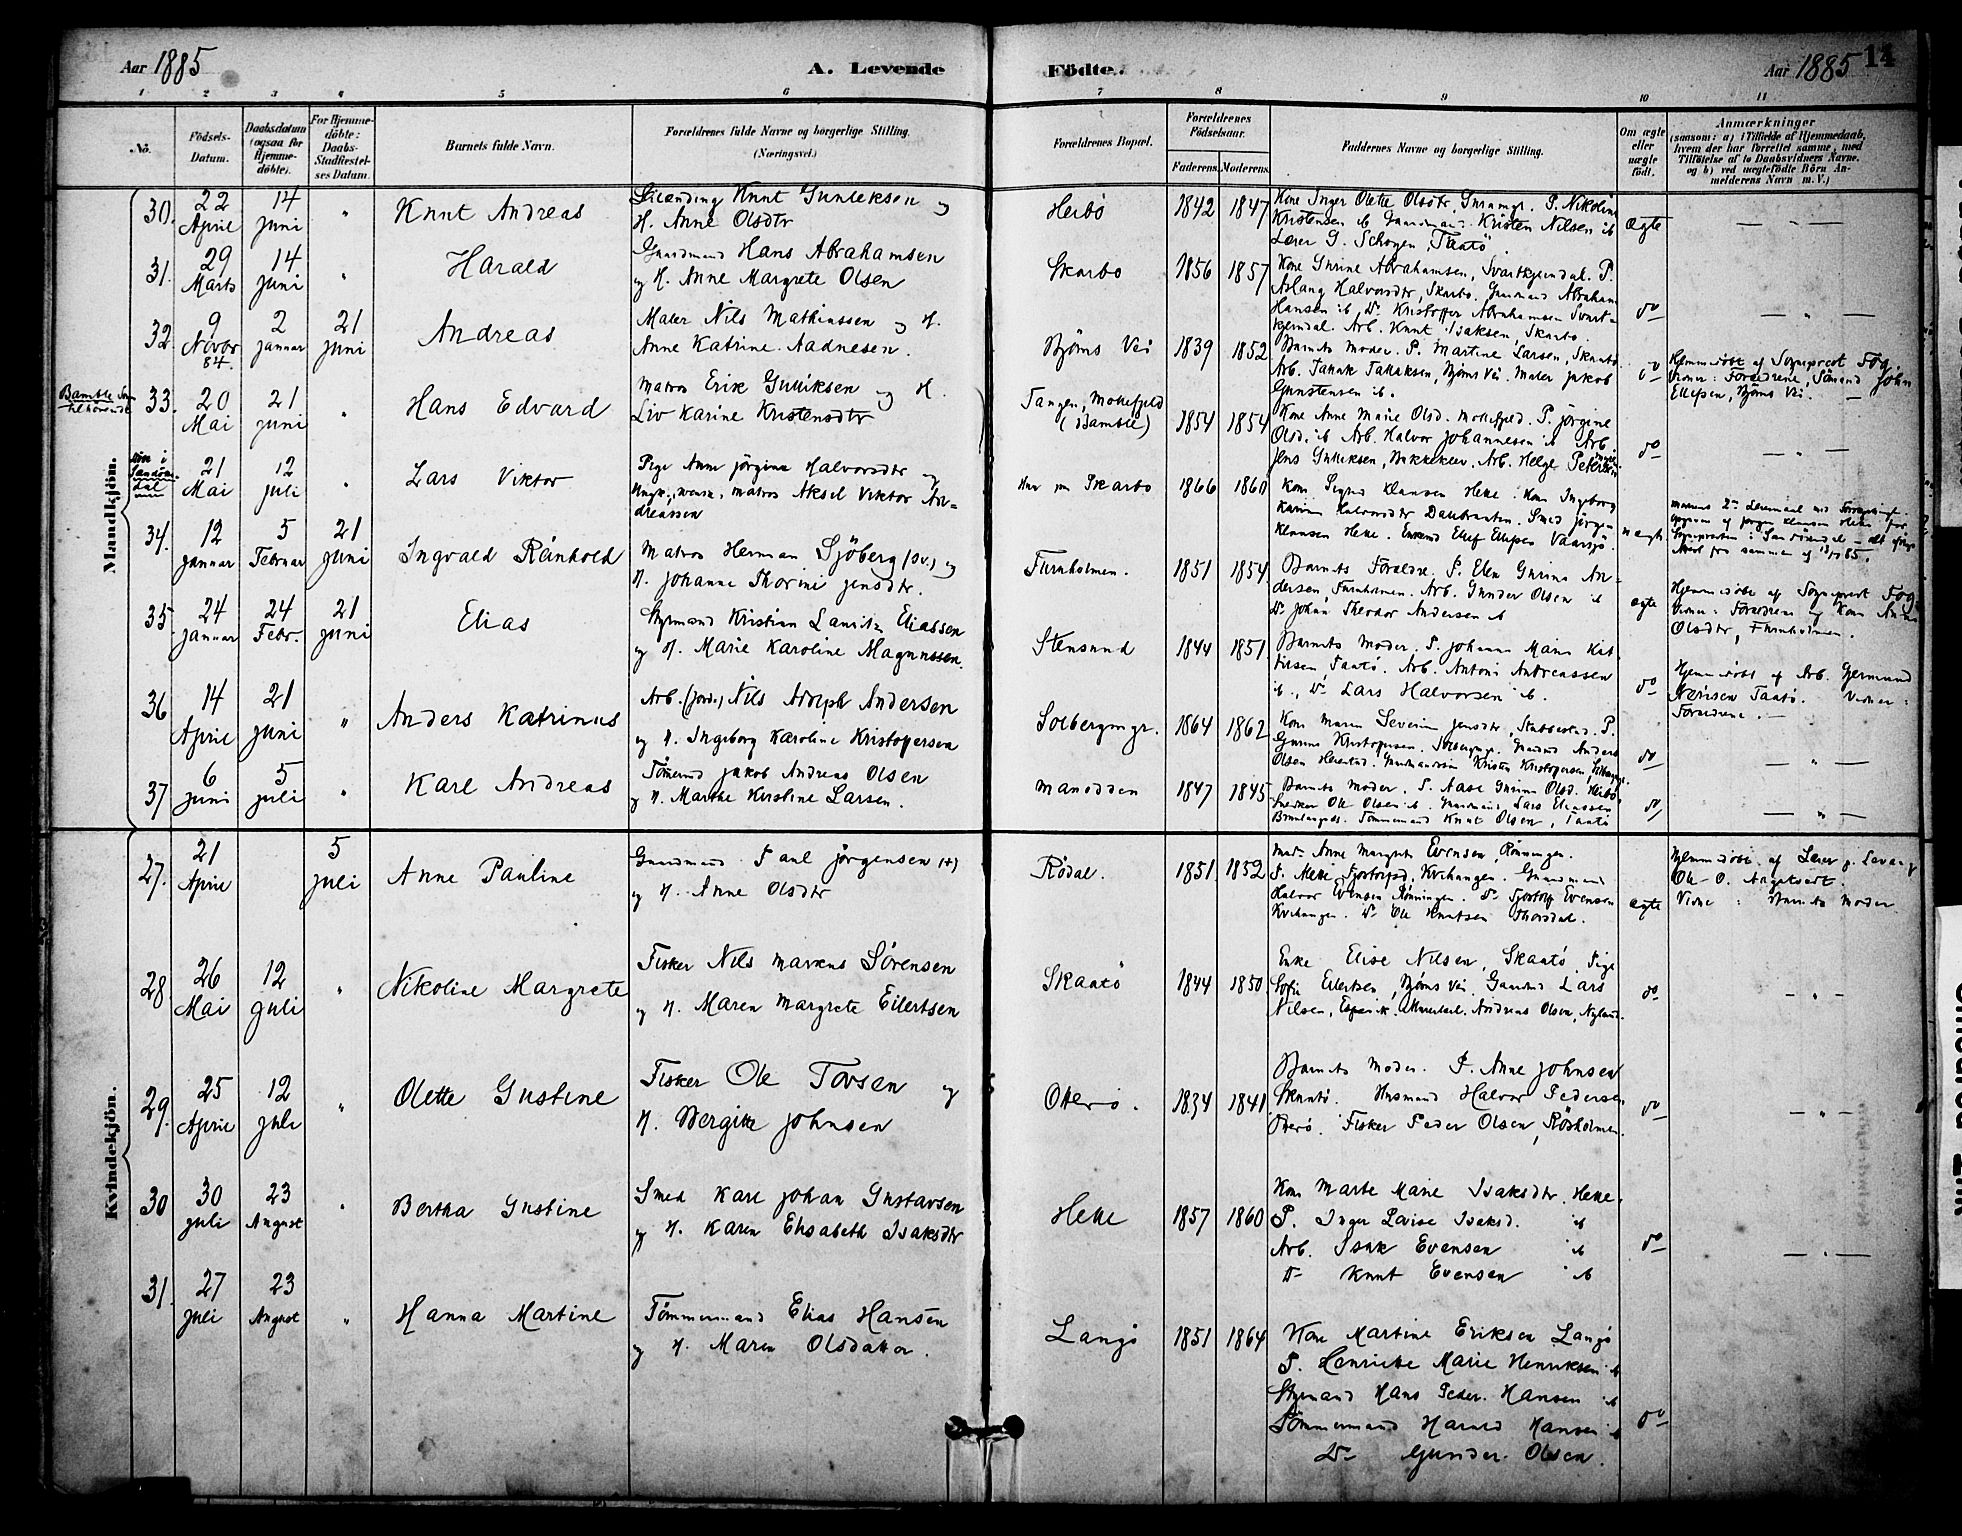 Aar 1885
A. Levende
Födte.
Aar 1885
14
1 2 3 4 5 6 7 8 9 10 11
No.
Födsels-Datum.
Daabsdatum (ogsaa for Hjemme-döbte).
For Hjemme-döbte: Daabs-Stadfæstel-ses Datum.
Barnets fulde Navn.
Forældrenes fulde Navne og borgerlige Stilling.
(Næringsvei.)
Forældrenes Bopæl.
Forældrenes Födselsaar.
Faderens. Moderens.
Faddernes Navne og borgerlige Stilling.
Om ægte eller uægte födt.
Anmærkninger
(saasom: a) i Tilfælde af Hjemmedaab,
hvem der har forrettet samme, med
Tilföielse af to Daabsvidners Navne.
og b) ved uægtefödte Börn An-
melderens Navn m. V.)
Mandkjön.
30. 22 April 14 Juni " Knut Andreas
Knut Gunleksen og
H. Anne Olsdtr
Heibö 1842 1847
Kone Inger Olette Olsdtr, P. Nikoline
Kristensen ib Gaardmand Kristen Nilsen ib
Lærer G. Schoyen, Taatö
ægte — " —
31. 29 Marts 14 Juni " Harald
Gaardmand Hans Abrahamsen
og H. Anne Margrete Olsen
Skarbo 1856 1857
Kone Gurine Abrahamsen, Svartkjendal. P.
Aslaug Halvorsdtr, Skarbo. Gaardmand Abraham
Hansen ib, Do Kristoffer Abrahamsen Svart-
kjendal. Arb. Knut Isaksen Skarbo.
do — " —
32. 9 Novbr 84. 2 Januar 21 Juni Andreas
Maler Nils Mathiassen og H.
Anne Katrine Aadnesen.
Bjöms Vei 1839 1852
Barnets Moder. P. Martine Larsen, Skaatö
Arb. Tallak Tallaksen, Bjöms Vei. Maler Jakob
Gunstensen ib.
do
Hjemmedöbt af Sogneprest Fog.
Vidner: Forældrene, Sömand John
Ellefsen, Bjöms Vei. —
Bamble Sogn tilhörende
33. 20 Mai 21 Juni " Hans Edvard
Matros Erik Gulliksen og H.
Liv Karine Kristensdtr
Tangen, Mollefjeld
(Bamble) 1854 1854
Kone Anne Marie Olsd. Mollefjeld. P. Jörgine
Olsd. ib Arb. Halvor Johannesen ib Arb.
Jens Gulliksen, Bakkeklev. Arb. Helge Petersen
do — " —
21 Mai 12 Juli " Lars Viktor
Pige Anne Jörgine Halvorsdtr og
Ungk., svensk, matros Aksel Viktor An-
dreassen
Skarbo 1866 1860
Kone Sigrid Klausen Helle. Kone Ingeborg
Karine Halvorsdtr Dalsbraaten. Smed Jörgen
Klausen Helle. Enkemd Ellef Ellefsen Vaasjö.
uægte
34. 12 Januar 5 Februar 21 Juni Ingvald Rånhold
Matros Herman Sjöberg (sv.) og
H. Johanne Thorine Jensdtr.
Furuholmen. 1851 1854
Barnets Forældre. P. Elen Gurine An-
dersen, Furuholmen. Arb. Gunder Olsen ib
Do Johan Theodor Andersen ib
ægte
Hjemmedöbt af Sogneprest Fog
Vidner: Forældrene og Kone Anne
Olsdtr, Furuholmen.
35. 24 Januar 24 Febr. 21 Juni Elias
Styrmand Kristian Lauritz Eliassen
og H. Marie Karoline Magnussen.
Stensund 1844 1851
Barnets Moder. P. Johanne Marie Kat-
Taatö. Arb. Antoni Andreassen
ib., Do Lars Halvorsen ib.
do
Hjemmedöbt af Arb. Gjermund
Nærisen Taatö. Vidner:
Forældrene. —
36 14 April 21 Juni " Anders Katrinus
Arb. (Jord.) Nils Adolph Andersen
og H. Ingeborg Karoline Kristoffersen
Solbergmyr. 1864 1862
Kone Maren Severine Jensdtr, Stabbestad. P.
Gurine Kristoffersen. Solbergmyr. Gaardmd Anders
Olsen Herestad. Gaardmandssön Kristen Kristoffersen,
do — " —
37 6 Juni 5 Juli " Karl Andreas
Tömmermd Jakob Andreas Olsen
og H. Marthe Kirstine Larsen.
Manodden 1847 1845
Barnets Moder. P. Aase Gurine Olsd. Heibö
Ole Olsen ib. Gaardmand Lars Eliassen
Tömmermand Knut Olsen, Taatö
do — " —
Kvindekjön.
27. 21 April 5 Juli Anne Pauline
Gaardmand Paul Jörgensen (+)
og H. Anne Olsdtr
Rödal. 1851 1852
Mad. Anne Margrete Evensen, Rönningen.
P. Mette Kvihaugen. Gaardmand
Halvor Evensen Rönningen. Do Evensen
Kvihaugen. Do Ole Knutsen Thorsdal.
ægte
Hjemmedöbt af Lærer p. Levang
Ole O.
Vidne: Barnets Moder
28 26 Mai 12 Juli " Nikoline Margrete
Fisker Nils Markus Sörensen
og H. Maren Margrete Eilertsen
Skaatö 1844 1850
Enke Elise Nilsen, Skaatö, Pige
Sofie Eilertsen, Bjöms Vei. Gaardmd Lars
Nilsen, Andreas Olsen, Nylund.
do — " —
29. 25 April 12 Juli " Olette Gustine
Fisker Ole Tovsen og
H. Bergitte Johnsen
Otterö. 1834 1841
Barnets Moder. P. Anne Johnsen
Skaatö. Husmand Halvor Pedersen
Otterö. Fisker Peder Olsen, Rösholmen.
do — " —
30 30 Juli 23 August " Bertha Gustine
Smed Karl Johan Gustavsen
og H. Karen Elisabeth Isaksdtr
Helle 1857 1860
Kone Marte Marie Isaksdtr Helle.
P. Inger Lovise Isaksd. ib
Arb. Isak Evensen ib
Do Knut Evensen ib
do — " —
31. 27 Juli 23 August " Hanna Martine
Tömmermand Elias Hansen
og H. Maren Olsdatter.
Langö 1851 1864
Kone Martine Eriksen Langö
P. Henriette Marie Henriksen ib
Styrmand Hans Peder Hansen ib
Tömmermand Harald Hansen ib
Do Gunder Olsen.
do